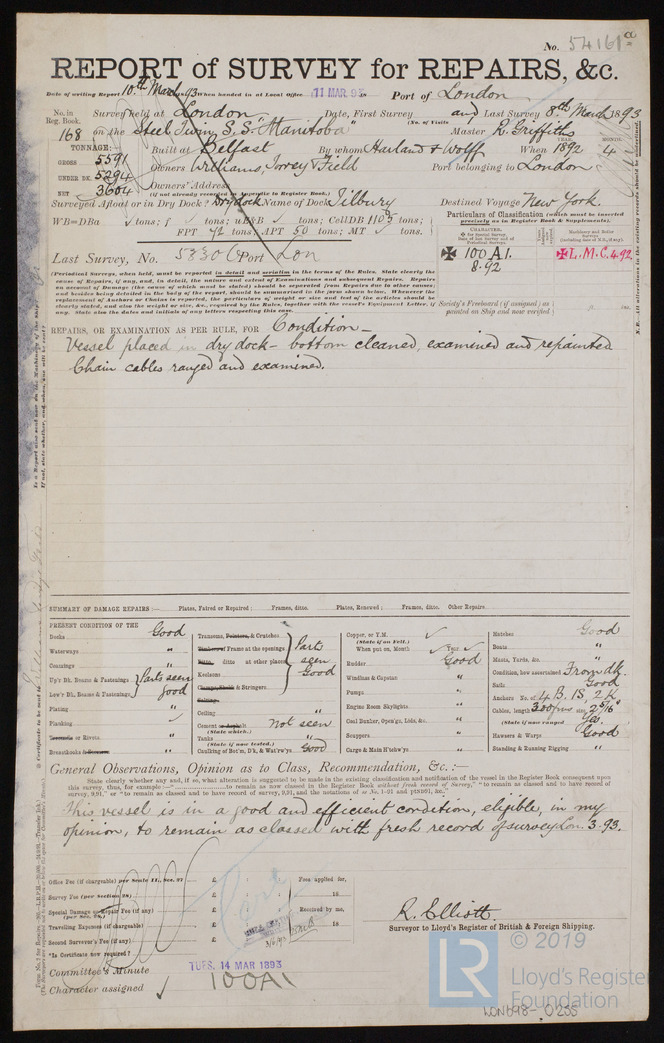 No. 54161a
REPORT of SURVEY for REPAIRS, &c.
Date of writing Report 10th March 93 When handed in at Local Office 11 MAR. 93 Port of London
No. in Reg. Book. Survey held at London Date, First Survey and Last Survey 8th March 1893
(No. of Visits
168 on the Steel Twin S.S. "Manitoba" Master R. Griffiths
TONNAGE: Built at Belfast By whom Harland & Wolff When 1892 4
YEAR. MONTH.
GROSS 5591 Owners Williams, Torrey & Field Port belonging to London
UNDER DK. 5294 Owners' Address
NET 3604 (if not already recorded in Appendix to Register Book.)
Surveyed Afloat or in Dry Dock? Dry dock Name of Dock Tilbury Destined Voyage New York.
WB=DBa tons; f tons; uE&B tons; CellDB 1103 tons;
FPT tons; APT 50 tons; MT tons.
Particulars of Classification (which must be inserted precisely as in Register Book & Supplements).
Last Survey, No. Port Lon
CHARACTER.
100 A1. L.M.C. 4.92
8.92
(Periodical Surveys, when held, must be reported in detail and seriatim in the terms of the Rules. State clearly the
cause of Repairs, if any, and, in detail, the nature and extent of Examinations and subsequent Repairs. Repairs
on account of Damage (the cause of which must be stated) should be separated from Repairs due to other causes;
and besides being detailed in the body of the report, should be summarised in the form shown below. Whenever the
replacement of Anchors or Chains is reported, the particulars of weight or size and test of the articles should be
clearly stated, and also the weight or size, &c., required by the Rules, together with the vessel's Equipment Letter, if
any. State also the dates and initials of any letters respecting this case.
Society's Freeboard (if assigned) as painted on Ship and now verified
REPAIRS, OR EXAMINATION AS PER RULE, FOR Condition—
Vessel placed in dry dock – bottom cleaned, examined and repainted
Chain cables ranged and examined.
SUMMARY OF DAMAGE REPAIRS:— Plates, Faired or Repaired; Frames, ditto. Plates, Renewed; Frames, ditto. Other Repairs
PRESENT CONDITION OF THE
Decks Good
Waterways "
Coamings "
Up'r Dk. Beams & Fastenings Parts seen
Low'r Dk. Beams, & Fastenings good
Plating "
Planking
Treenails or Rivets "
Breasthooks "
Transoms, Pointers, & Crutches
Timbers or Frame at the openings Parts
Ditto ditto at other places seen
Keelsons Good
Clamps, Shelf & Stringers
Ceiling "
Cement or Asphalt Not seen
(State which.)
Tanks "
(State if now tested.)
Caulking of Bot'm, D'k, & Wat'rw'ys Good
Copper, or Y.M.
(State if on Felt.)
When put on, Month Year
Rudder Good
Windlass & Capstan "
Pumps "
Engine Room Skylights "
Coal Bunker, Open'gs, Lids, &c. "
Scuppers "
Cargo & Main H'tchw'ys "
Hatches Good
Boats "
Masts, Yards, &c. "
Condition, how ascertained From dk.
Sails Good
Anchors No. of 4 B. 1S, 2K
Cables, length 300 fms size 2 5/16"
(State if now ranged Yes
Hawsers & Warps Good
Standing & Running Rigging "
General Observations, Opinion as to Class, Recommendation, &c.:—
State clearly whether any and, if so, what alteration is suggested to be made in the existing classification and notification of the vessel in the Register Book consequent upon
this survey, thus, for example:—" to remain as now classed in the Register Book without fresh record of Survey," "to remain as classed and to have record of
survey, 9,91," or "to remain as classed and to have record of survey, 9,91, and the notation of
This vessel is in a good and efficient condition, eligible, in my
opinion, to remain as classed with fresh record of survey Lon. 3. 93.
Office Fee (if chargeable) per Scale II., Sec. 27 £ Fees applied for,
Survey Fee (per Section 28) £ 18
Special Damage or Repair Fee (if any) £ Received by me,
(per Sec. 28,)
Travelling Expenses (if chargeable) £ 18
Second Surveyor's Fee (if any) £
*Is Certificate now required?
R. Elliott.
Surveyor to Lloyd's Register of British & Foreign Shipping.
Committee's Minute TUES. 14 MAR 1893
Character assigned 100A1
© 2019
LR
Lloyd's Register
Foundation
LON698-0255